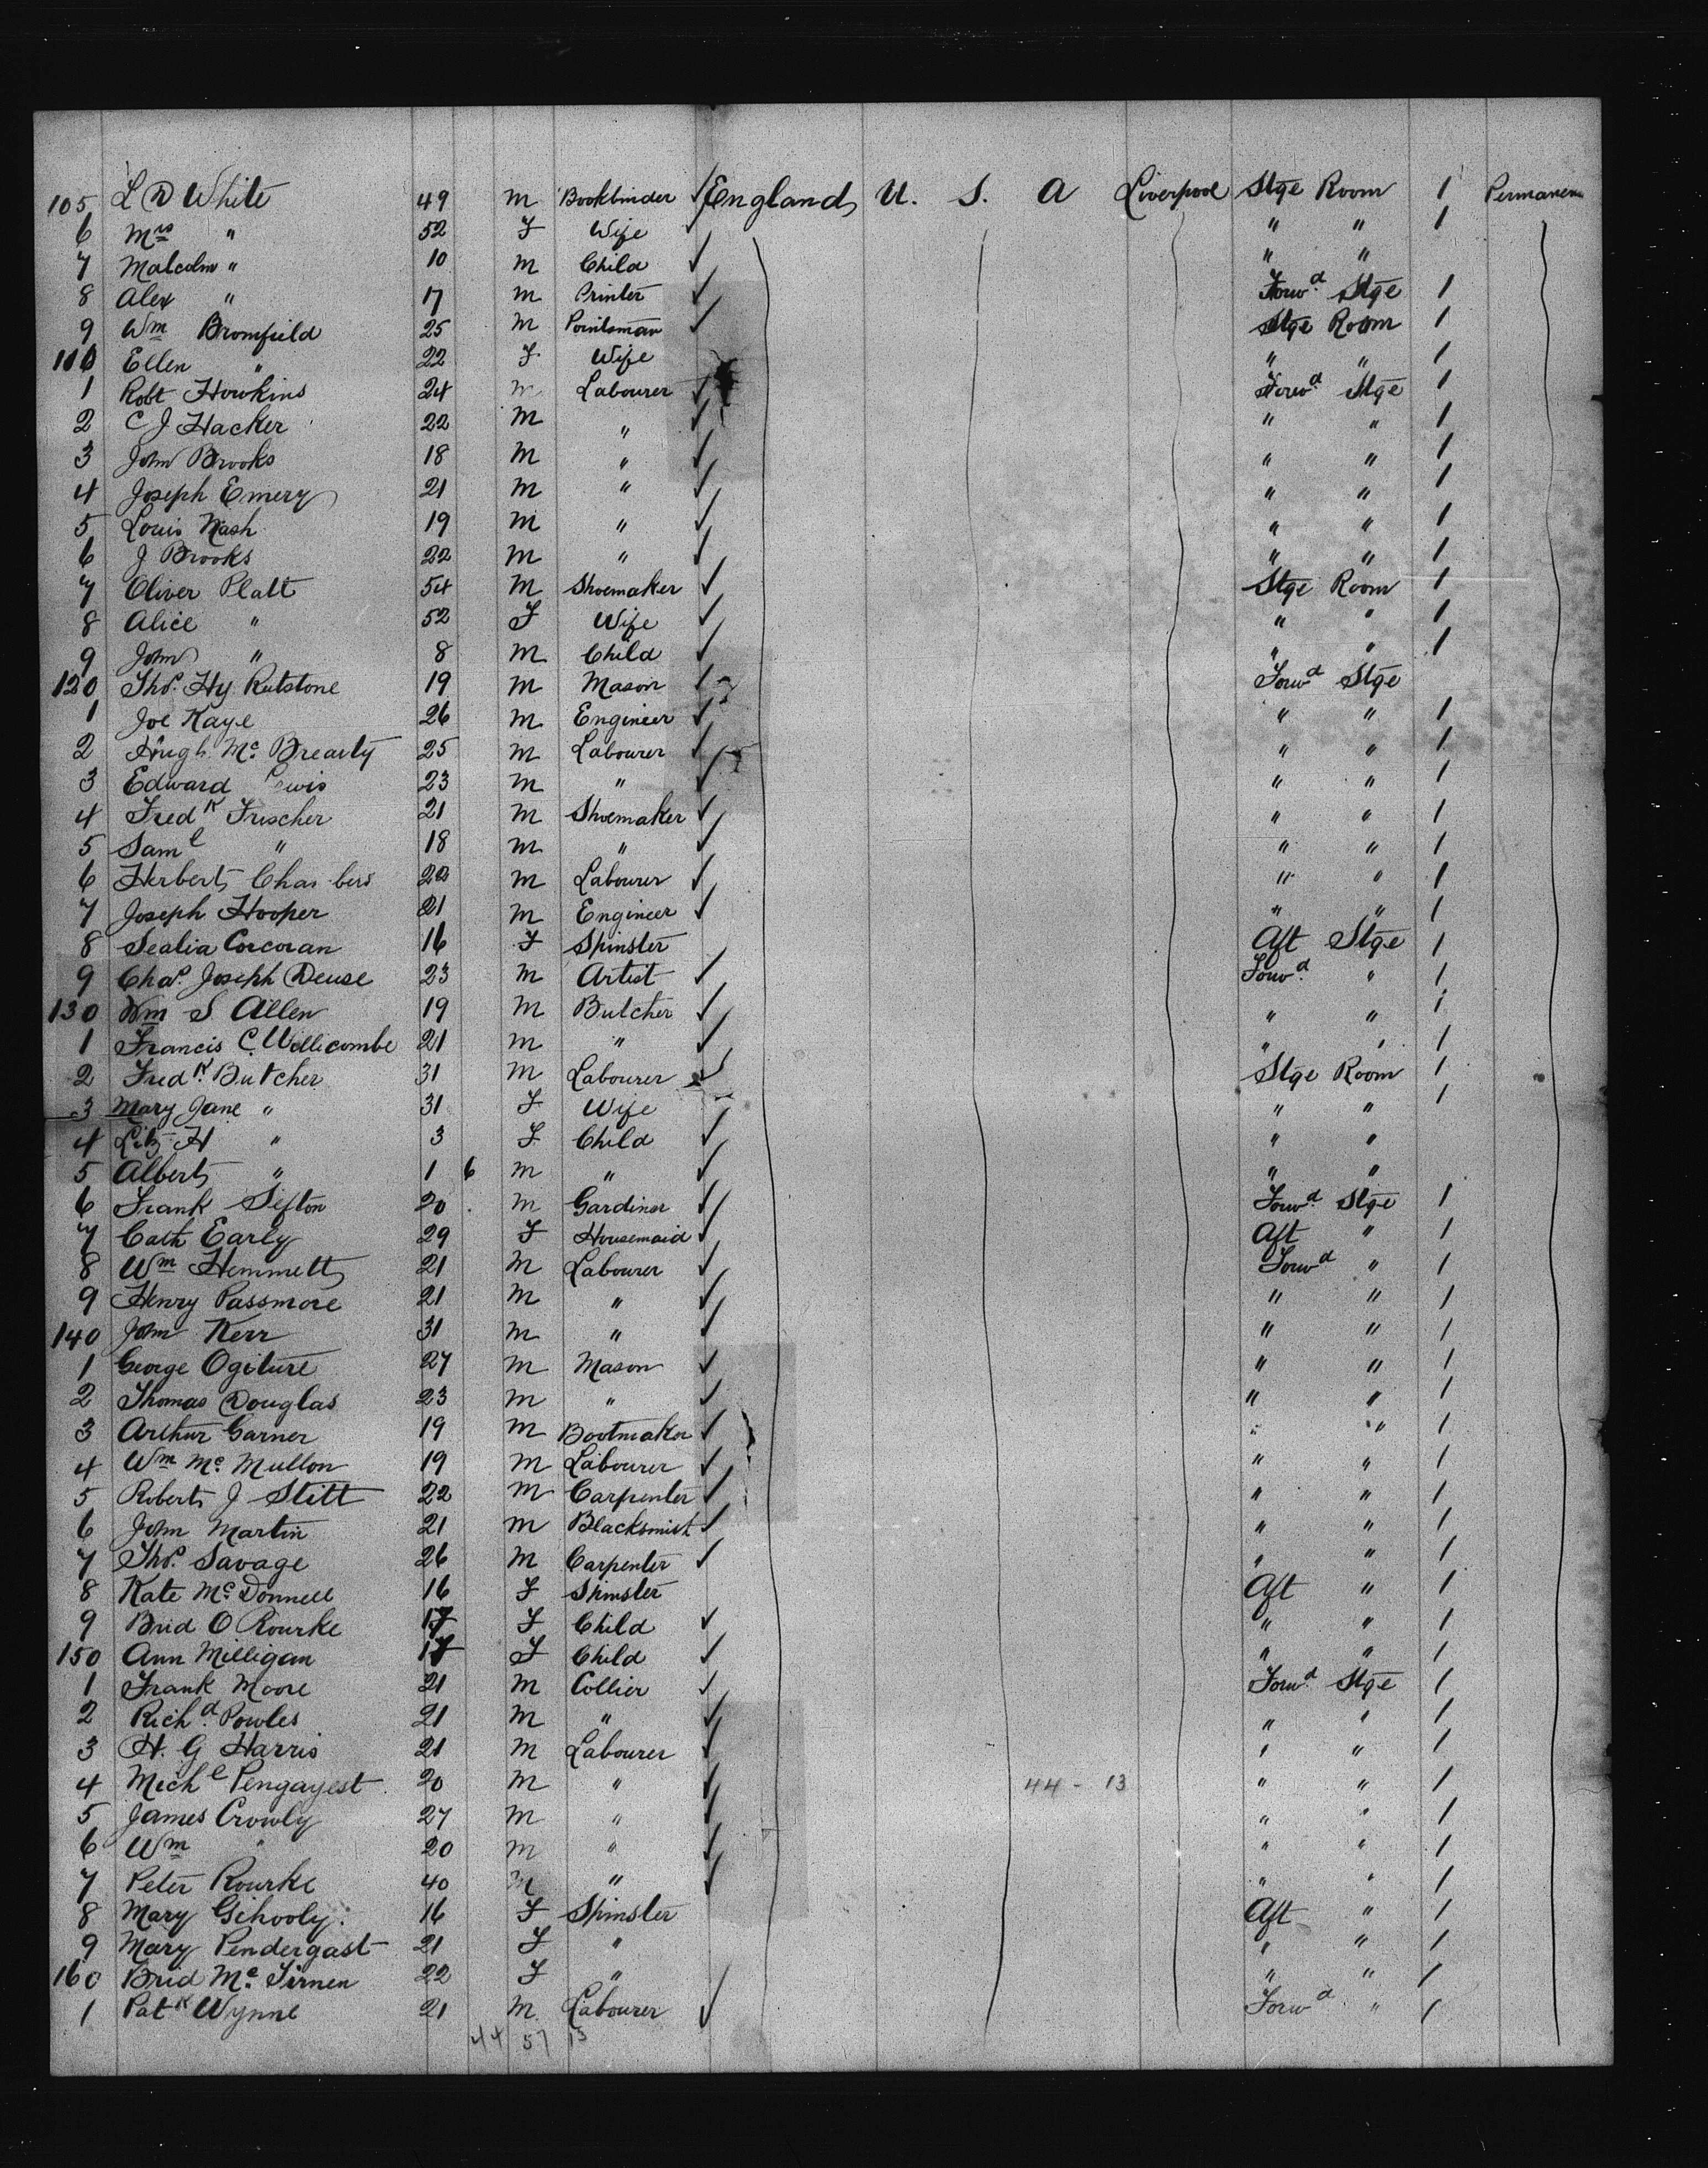 105 L D White 49 M Bookbinder ✓ England U. S. A Liverpool Stge Room 1 Permanen
6 Mrs " 52 F Wife " " 1
7 Malcolm " 10 M Child ✓ " "
8 Alex " 17 M Printer ✓ Forwd Stge 1
9 Wm Bromfield 25 M Pointsman ✓ Stge Room 1
110 Ellen " 22 F Wife " " 1
1 Robt Howkins 24 m Labourer ✓ Forwd Stge 1
2 C J Hacker 22 M " ✓ " " 1
3 John Brooks 18 M " ✓ " " 1
4 Joseph Emery 21 M " ✓ " " 1
5 Louis Nash 19 M " ✓ " " 1
6 J Brooks 22 M " ✓ " " 1
7 Oliver Platt 54 M Shoemaker ✓ Stge Room 1
8 Alice " 52 F Wife ✓ " " 1
9 John " 8 M Child ✓ " " 1
120 Thos. Hy Rutstone 19 M Mason ✓ Forwd Stge
1 Joe Kaye 26 M Engineer ✓ " " 1
2 Hugh Mc Brearty 25 M Labourer ✓ " " 1
3 Edward ewis 23 M " ✓ " " 1
4 Fredk Frischer 21 M Shoemaker ✓ " " 1
5 Saml " 18 M " ✓ " " 1
6 Herbert Cha bers 22 M Labourer ✓ " " 1
7 Joseph Hooper 21 M Engineer ✓ " " 1
8 Sealia Corcoran 16 F Spinster Aft Stge 1
9 Chas. Joseph Deuse 23 M Artist ✓ Forwd " 1
130 Wm S Allen 19 M Butcher ✓ " " 1
1 Francis C. Willicombe 21 M " ✓ " " 1
2 Fredk Butcher 31 M Labourer ✓ Stge Room 1
3 Mary Jane " 31 F Wife " " 1
4 Liz H " 3 F Child ✓ " "
5 Albert " 1 6 M " ✓ " "
6 Frank Sefton 20 M Gardiner ✓ Forwd Stge 1
7 Cath Early 29 F Housemaid ✓ Aft " 1
8 Wm Hemmett 21 M Labourer ✓ Forwd " 1
9 Henry Passmore 21 M " ✓ " " 1
140 John Kerr 31 M " ✓ " " 1
1 George Ogiture 27 M Mason ✓ " " 1
2 Thomas Douglas 23 M " ✓ " " 1
3 Arthur Garner 19 M Bootmaker ✓ " " 1
4 Wm Mc Mullon 19 M Labourer ✓ " " 1
5 Robert J Stitt 22 M Carpenter ✓ " " 1
6 John Martin 21 M Blacksmith ✓ " " 1
7 Thos. Savage 26 M Carpenter ✓ " " 1
8 Kate Mc Donnell 16 F Spinster Aft " 1
9 Brid O Rourke 17 F Child ✓ " " 1
150 Ann Milligan F Child ✓ " " 1
1 Frank Moore 21 M Collier ✓ Forwd Stge 1
2 Richd. Powles 21 M " ✓ " " 1
3 H. G Harris 21 M Labourer ✓ " " 1
4 Michl Pengayest 20 M " ✓ 44 - 13 " " 1
5 James Crowly 27 M " ✓ " " 1
6 Wm " 20 M " ✓ " " 1
7 Peter Rourke 40 M " ✓ " " 1
8 Mary Gihooly. 16 F Spinster Aft " 1
9 Mary Pendergast 21 F " " " 1
160 Brid Mc Tirnen 22 F " " " 1
1 Patk Wynne 21 M Labourer ✓ Forwd " 1
44 57 13